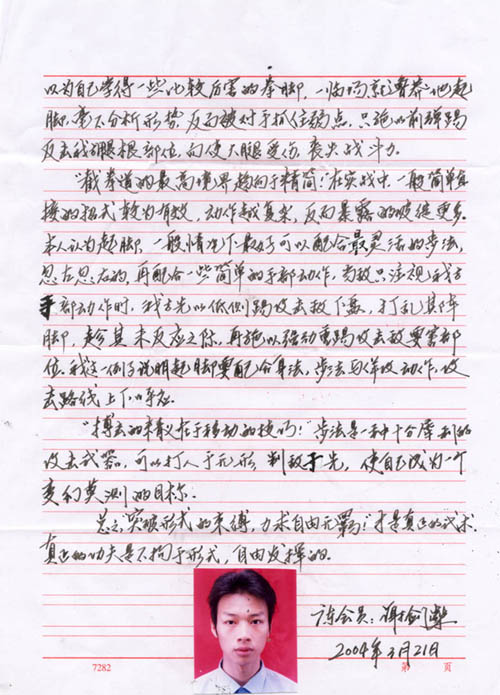 以为自己学得一些比较厉害的拳脚，一临场就鲁莽地起
脚，毫不分析形势，反而被对手抓住弱点，只施以前弹踢
反击我方腿根部位，向使大腿受伤，丧失战斗力。
“截拳道的最高境界趋向于精简！”在实战中，一般简单直
接的招式较为有效，动作越复杂，反而暴露的破绽更多。
本人认为起脚，一般情况下最好可以配合最灵活的步法，
忽左忽右的，再配合一些简单的手部动作，当敌只注视我方
手部动作时，我方先以低侧踢攻击敌下盘，打乱其阵
脚，趁其未反应之际，再施以强劲重踢攻击敌要害部
位。我这一例子说明起脚要配合身法，步法与佯攻动作，攻
击路线上下呼应。
“搏击的本义在于移动的技巧！”步法是一种十分犀利的
攻击武器，可以打人于无形，制敌于先，使自己成为一个
变幻莫测的目标。
总之，“突破形式的束缚，力求自由无羁！”才是真正的武术，
真正的功夫是不拘于形式，自由发挥的。
读会员：谢剑
2004年3月21日
7282
第 页